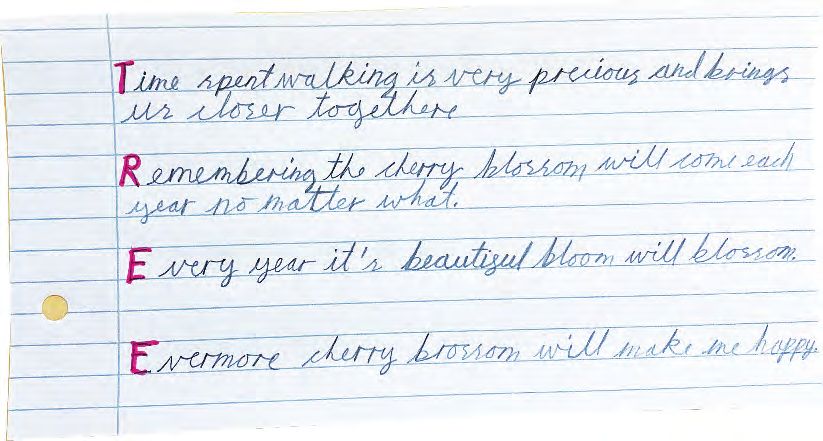 Time spent walking is very precious and brings
us closer togethere
Remembering the cherry blossom will come each
year no matter what.
Every year it's beautiful bloom will blossom.
Evermore cherry brossom will make me happy.